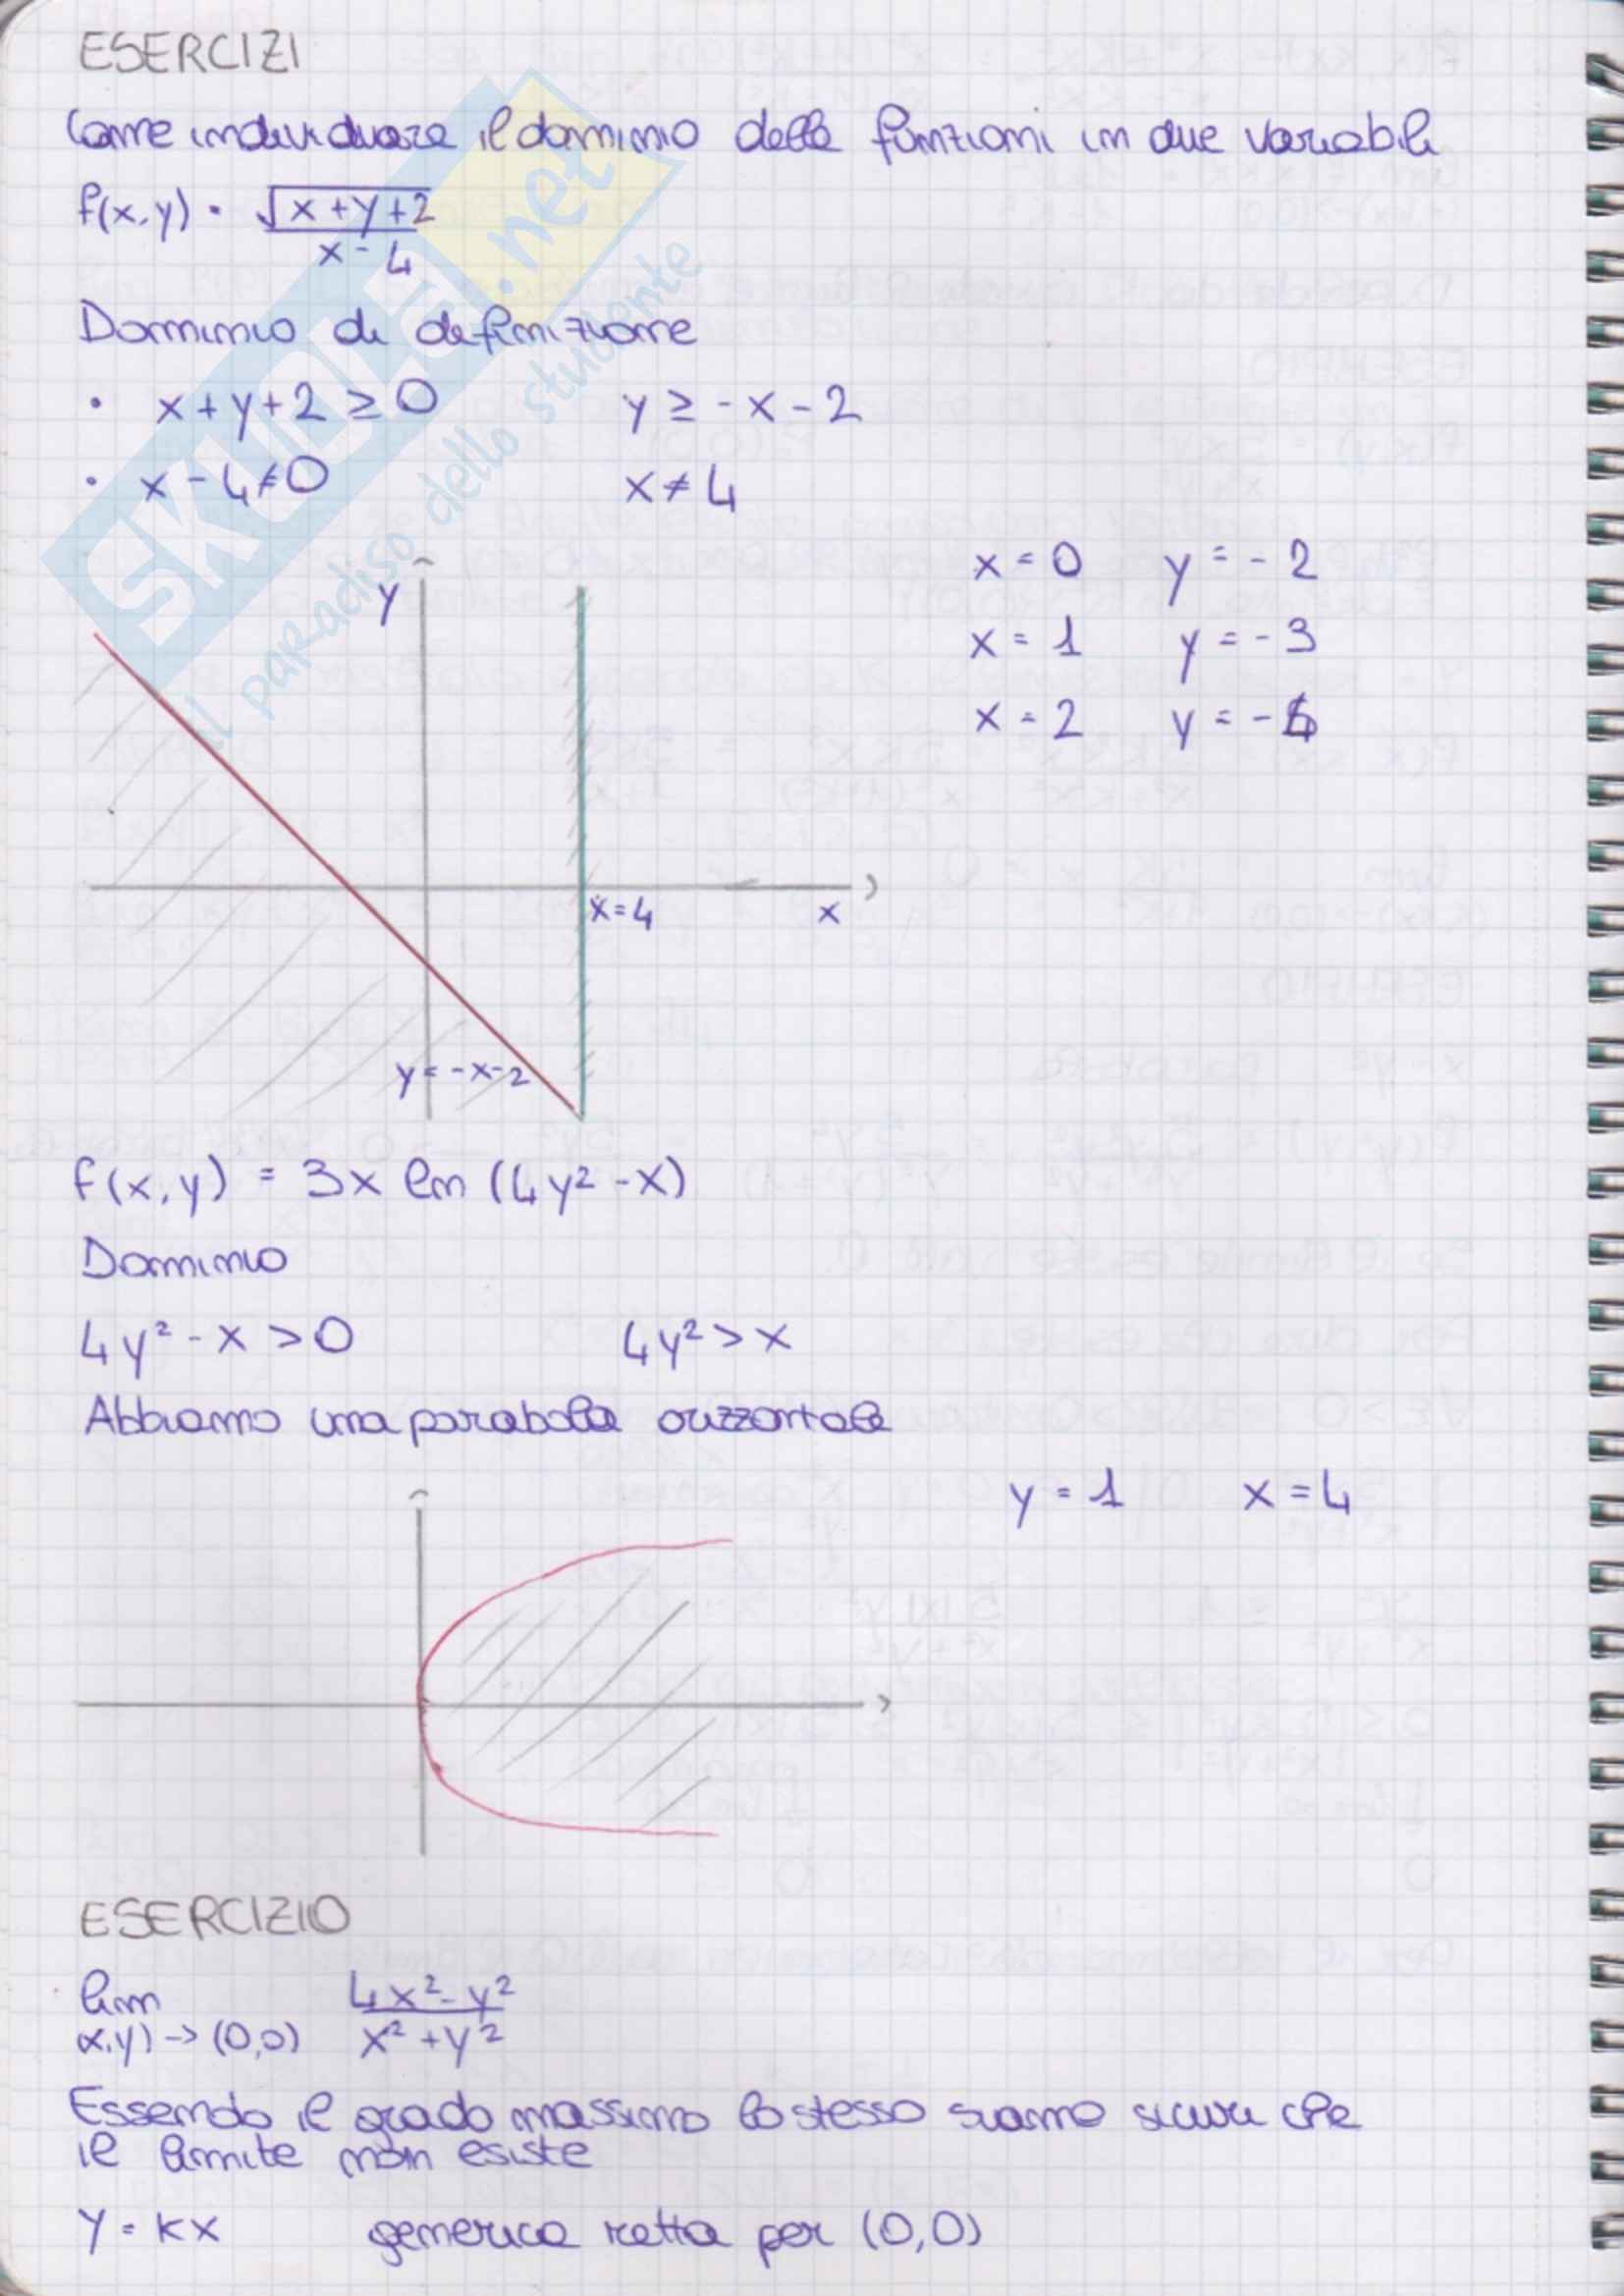 ESERCIZI
Come individuare il dominio delle funzioni in due variabili
f(x,y) = √(x+y+2) / (x-4)
Dominio di definizione
• x+y+2 ≥ 0    y ≥ -x-2
• x-4≠0    x≠4
x=0    y=-2
x=1    y=-3
x=2    y=-4
y
x=4    x
y=-x-2
f(x,y) = 3x ln (4y²-x)
Dominio
4y²-x>0    4y²>x
Abbiamo una parabola orizzontale
y=1    x=4
ESERCIZIO
lim (x,y)→(0,0) (4x²-y²) / (x²+y²)
Essendo il grado massimo lo stesso siamo sicuri che
il limite non esiste
y=kx    generica retta per (0,0)
SKUOLA.net
il paradiso dello studente